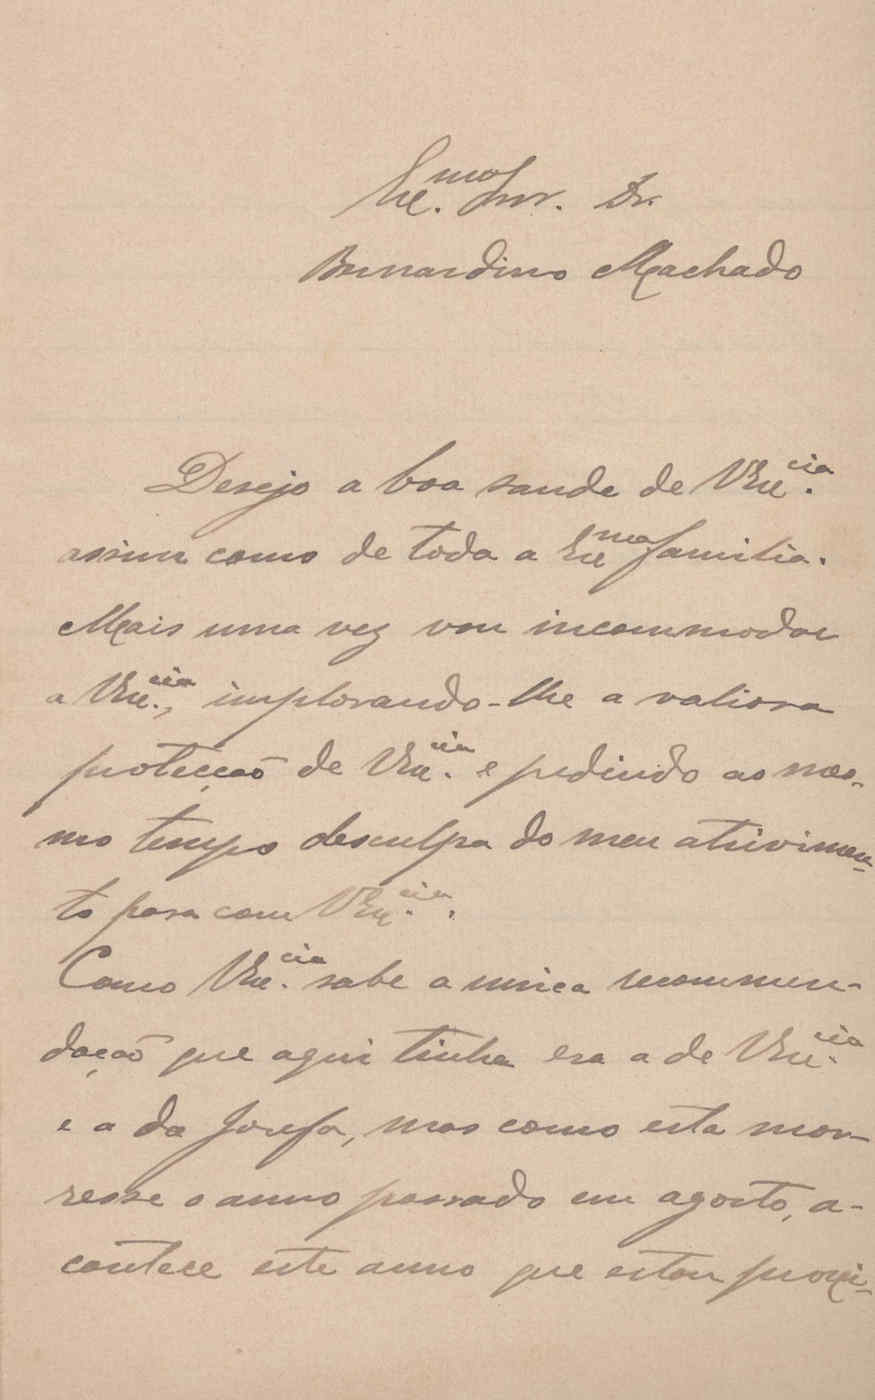 Exc.mo Snr. Dr.
Bernardino Machado
Desejo a boa saude de VExc.cia
assim como de toda a Exc.ma familia.
Mais uma vez vou incommodar
a VExc.cia, implorando-lhe a valiosa
protecção de VExc.cia e pedindo ao mes-
mo tempo desculpa do meu atrivimen-
to para com VExc.cia.
Como VExc.cia sabe a unica recommen-
dação que aqui tinha era a de VExc.cia
e a da Josefa, mas como esta mor-
resse o anno passado em agosto, a-
contece este anno que estou proxi-